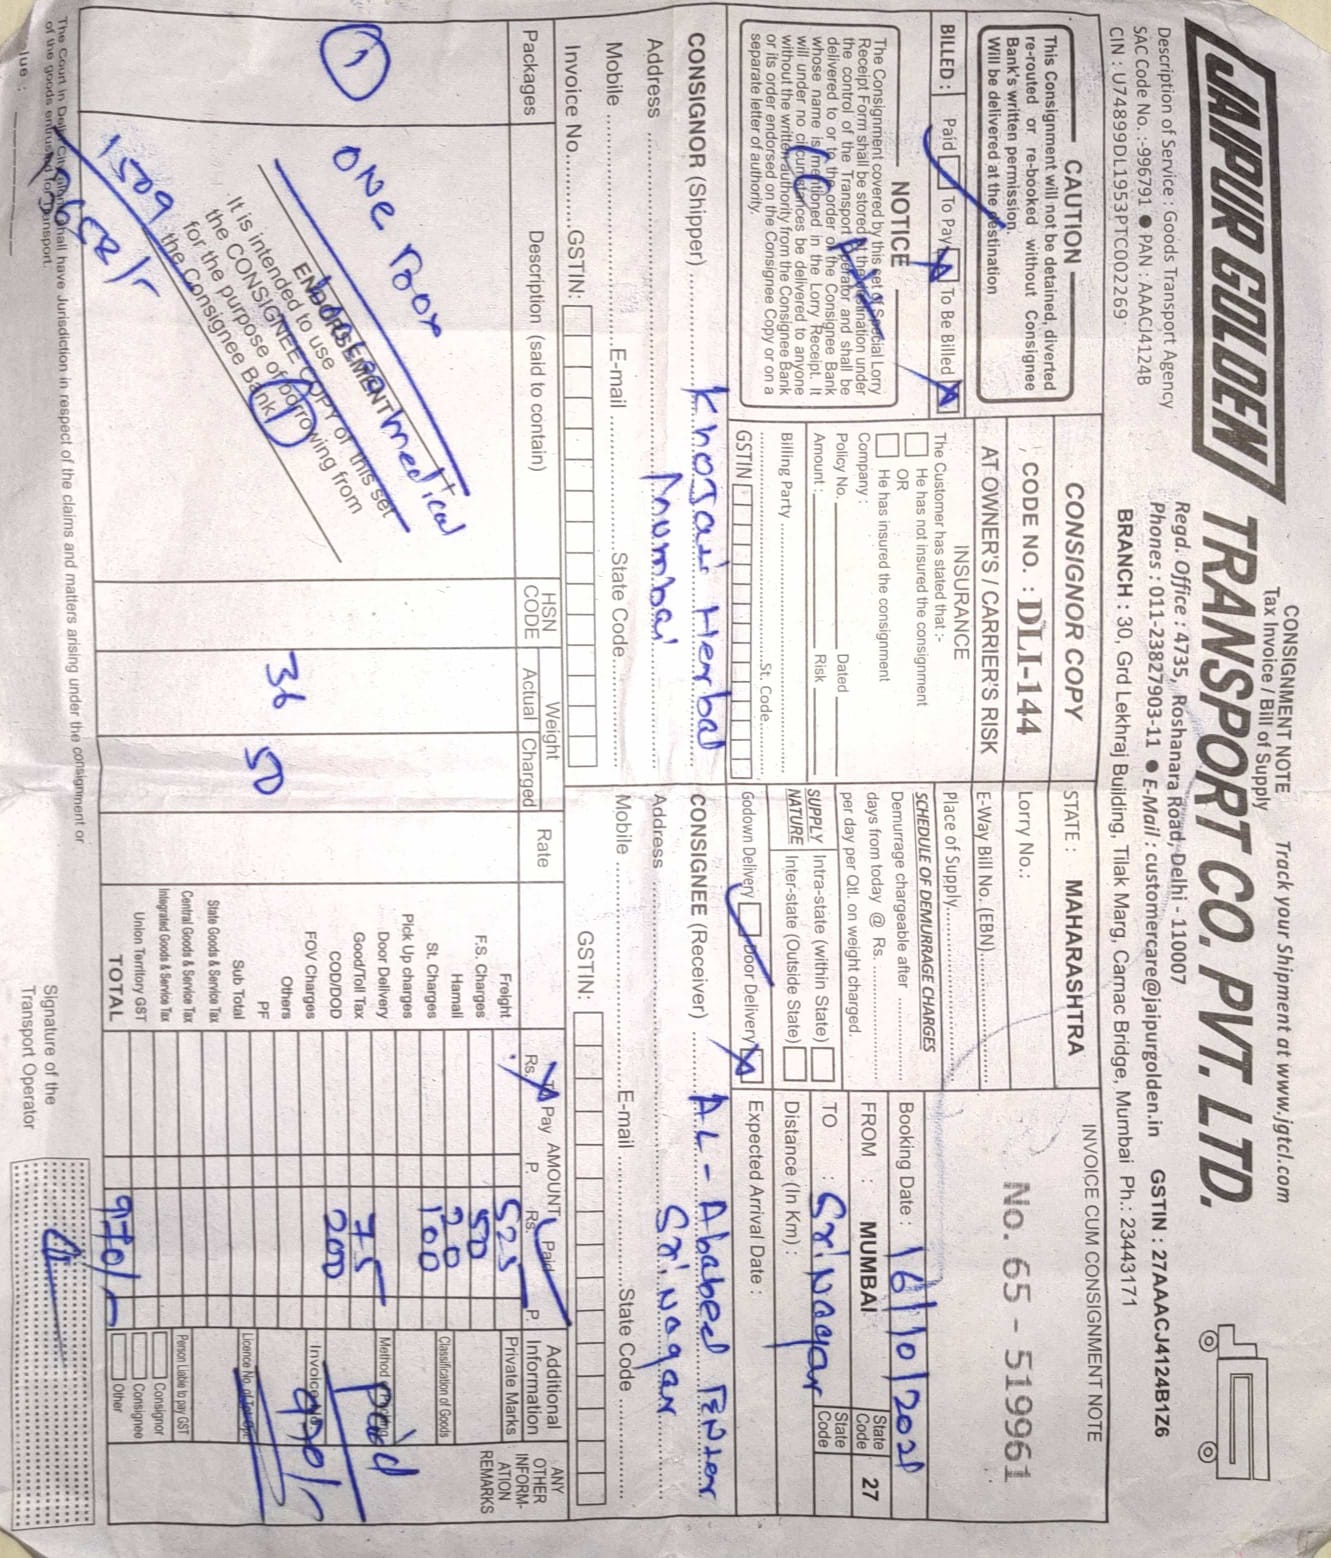 CONSIGNMENT NOTE
Tax Invoice / Bill of Supply
Track your Shipment at www.jgtcl.com
JAIPUR GOLDEN TRANSPORT CO. PVT. LTD.
Regd. Office : 4735, Roshanara Road, Delhi - 110007
Phones : 011-23827903-11 ● E-Mail : customercare@jaipurgolden.in GSTIN : 27AAACJ4124B1Z6
Description of Service : Goods Transport Agency
SAC Code No. :-996791 ● PAN : AAACJ4124B
CIN : U74899DL1953PTC002269
BRANCH : 30, Grd Lekhraj Building, Tilak Marg, Carnac Bridge, Mumbai Ph.: 23443171
CAUTION
This Consignment will not be detained, diverted
re-routed or re-booked without Consignee
Bank's written permission.
Will be delivered at the destination
BILLED : Paid To Pay To Be Billed
NOTICE
The Consignment covered by this set of Special Lorry
Receipt Form shall be stored at the destination under
the control of the Transport Operator and shall be
delivered to or to the order of the Consignee Bank
whose name is mentioned in the Lorry Receipt. It
will under no circumstances be delivered to anyone
without the written authority from the Consignee Bank
or its order endorsed on the Consignee Copy or on a
separate letter of authority.
CONSIGNOR COPY
CODE NO. : DLI-144
AT OWNER'S / CARRIER'S RISK
INSURANCE
The Customer has stated that :-
He has not insured the consignment
OR
He has insured the consignment
Company :
Policy No. Dated
Amount : Risk
Billing Party
St. Code
GSTIN
STATE : MAHARASHTRA
Lorry No.:
E-Way Bill No. (EBN)
Place of Supply
SCHEDULE OF DEMURRAGE CHARGES
Demurrage chargeable after
days from today @ Rs.
per day per Qtl. on weight charged.
SUPPLY NATURE
Intra-state (within State)
Inter-state (Outside State)
Godown Delivery Door Delivery
INVOICE CUM CONSIGNMENT NOTE
No. 65 - 519961
Booking Date : 16/10/2021
FROM : MUMBAI State Code 27
TO : Srinagar State Code
Distance (In Km) :
Expected Arrival Date :
CONSIGNOR (Shipper) Khojati Herbal
Address Mumbai
Mobile E-mail State Code
Invoice No. GSTIN:
CONSIGNEE (Receiver) AL-Ababeel TENter
Address Srinagar
Mobile E-mail State Code
GSTIN:
Packages
Description (said to contain)
HSN CODE
Weight
Actual Charged
Rate
AMOUNT
To Pay Paid
Rs. P. Rs. P.
Additional Information
ANY OTHER INFORM-ATION REMARKS
1
ONE Box
medical
36 50
ENDORSEMENT
It is intended to use
the CONSIGNEE COPY of this set
for the purpose of borrowing from
the Consignee Bank
1
1509
Freight 525
F.S. Charges 50
Hamali 20
St. Charges 100
Pick Up charges
Door Delivery
Good/Toll Tax 75
COD/DOD 200
FOV Charges
Others
PF
Sub Total
State Goods & Service Tax
Central Goods & Service Tax
Integrated Goods & Service Tax
Union Territory GST
TOTAL 970/-
Private Marks
Classification of Goods
Method of Packing
Paid
Invoice No.
970/-
Person Liable to pay GST
Consignor
Consignee
Other
The Court in Delhi City alone shall have Jurisdiction in respect of the claims and matters arising under the consignment or
of the goods entrusted for Transport.
Signature of the
Transport Operator